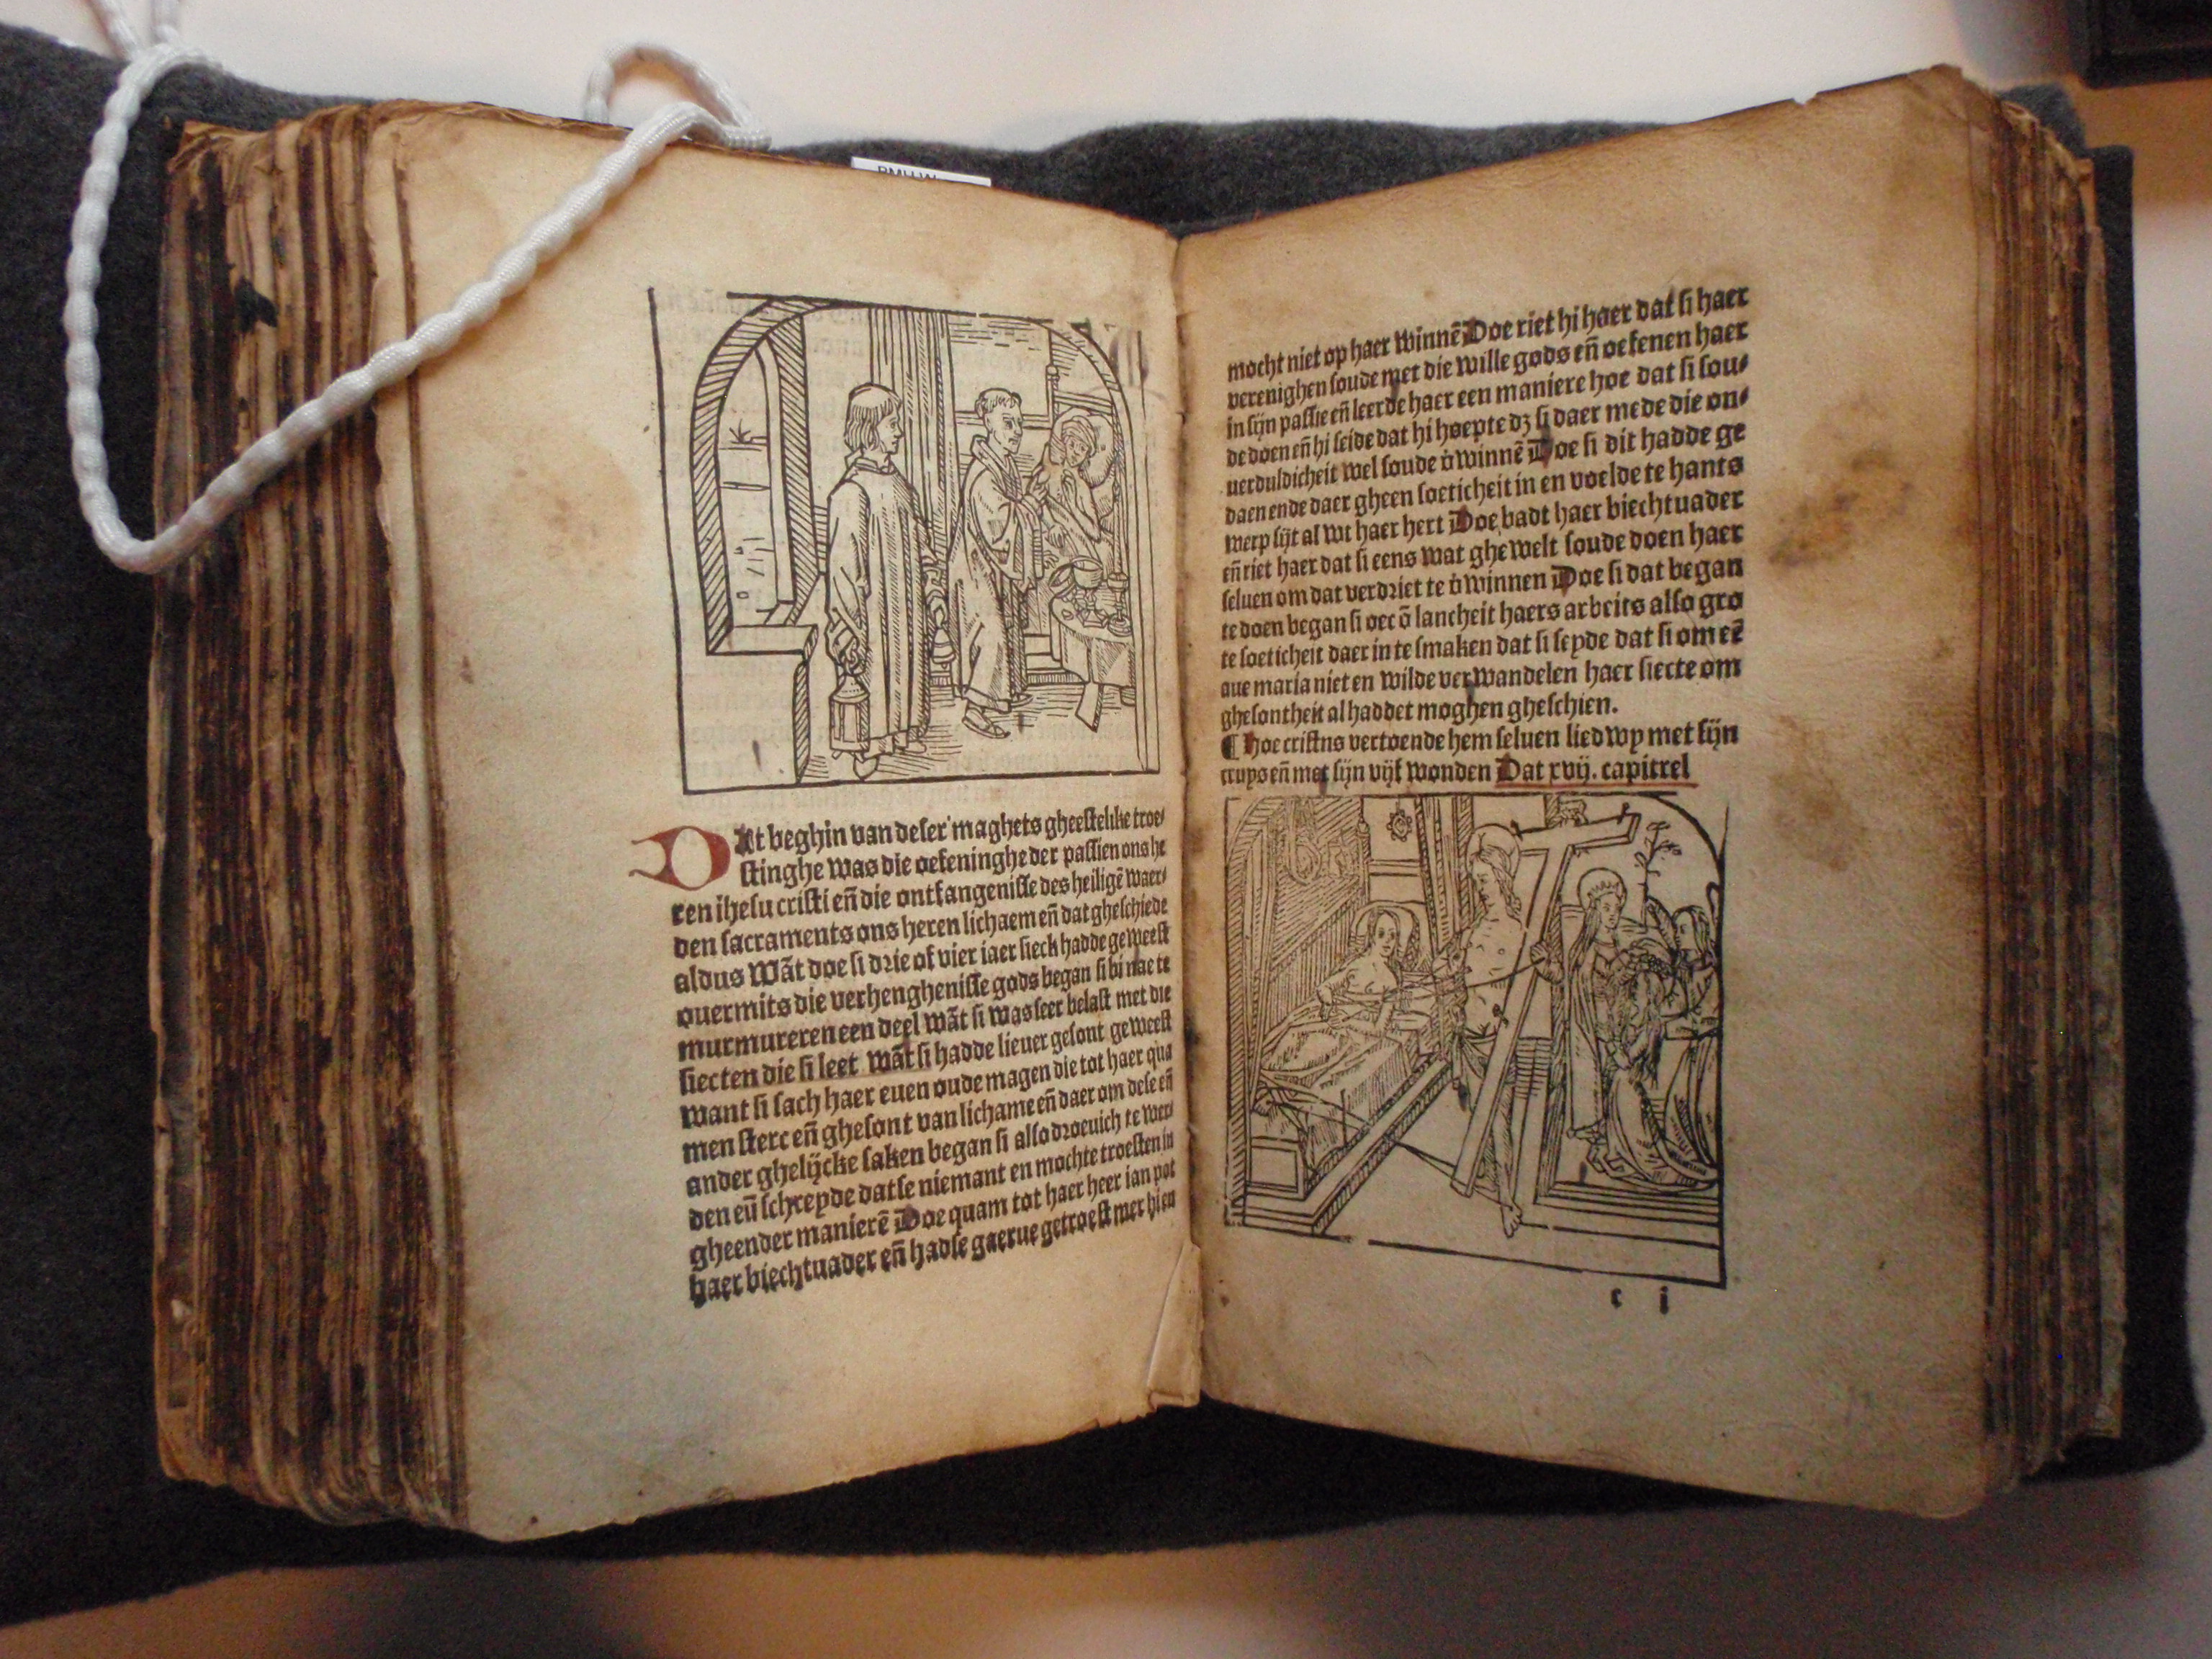 DAt beghin van deser maghets gheestelike troe⸗
stinghe was die oefeninghe der passien ons he
ren ihesu cristi eñ die ontfangenisse des heiligē waer⸗
den sacraments ons heren lichaem eñ dat gheschiede
aldus Wāt doe si drie of vier iaer sieck hadde geweest
ouermits die verhenghenisse gods began si bi nae te
murmureren een deel wāt si was seer belast met die
siecten die si leet wāt si hadde lieuer gesont geweest
want si sach haer euen oude magen die tot haer quā
men sterc eñ ghesont van lichame eñ daer om dese eñ
ander ghelijcke saken began si also droeuich te wer⸗
den eñ schreyde datse niemant en mochte troesten in
gheender manierē Doe quam tot haer heer ian pot
haer biechtuader eñ hadse gaerue getroest mer hi en
mocht niet op haer winnē Doe riet hi haer dat si haer
verenighen soude met die wille gods eñ oefenen haer
in sijn passie eñ leerde haer een maniere hoe dat si sou⸗
de doen eñ hi seide dat hi hoepte dꝫ si daer mede die on⸗
uerduldicheit wel soude v̇winnē Doe si dit hadde ge
daen ende daer gheen soeticheit in en voelde te hants
werp sijt al wt haer hert Doe badt haer biechtuader
eñ riet haer dat si eens wat ghewelt soude doen haer
seluen om dat verdriet te v̇winnen Doe si dat began
te doen began si oec ō lancheit haers arbeits also gro
te soeticheit daer in te smaken dat si seyde dat si om eē
aue maria niet en wilde verwandelen haer siecte om
ghesontheit al haddet moghen gheschien.
¶ Hoe cristus vertoende hem seluen liedwy met sijn
cruys eñ met sijn vijf wonden Dat xvij. capittel
c i